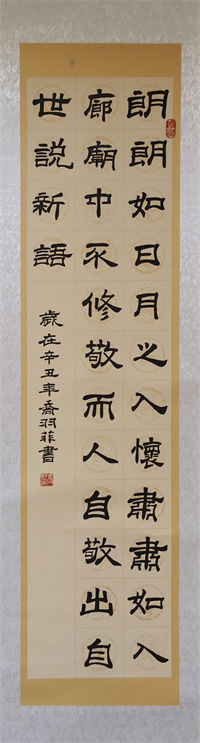 朗朗如日月之入懷肅肅如入
廊廟中不修敬而人自敬出自
世説新語
歲在辛丑年喬羽菲書